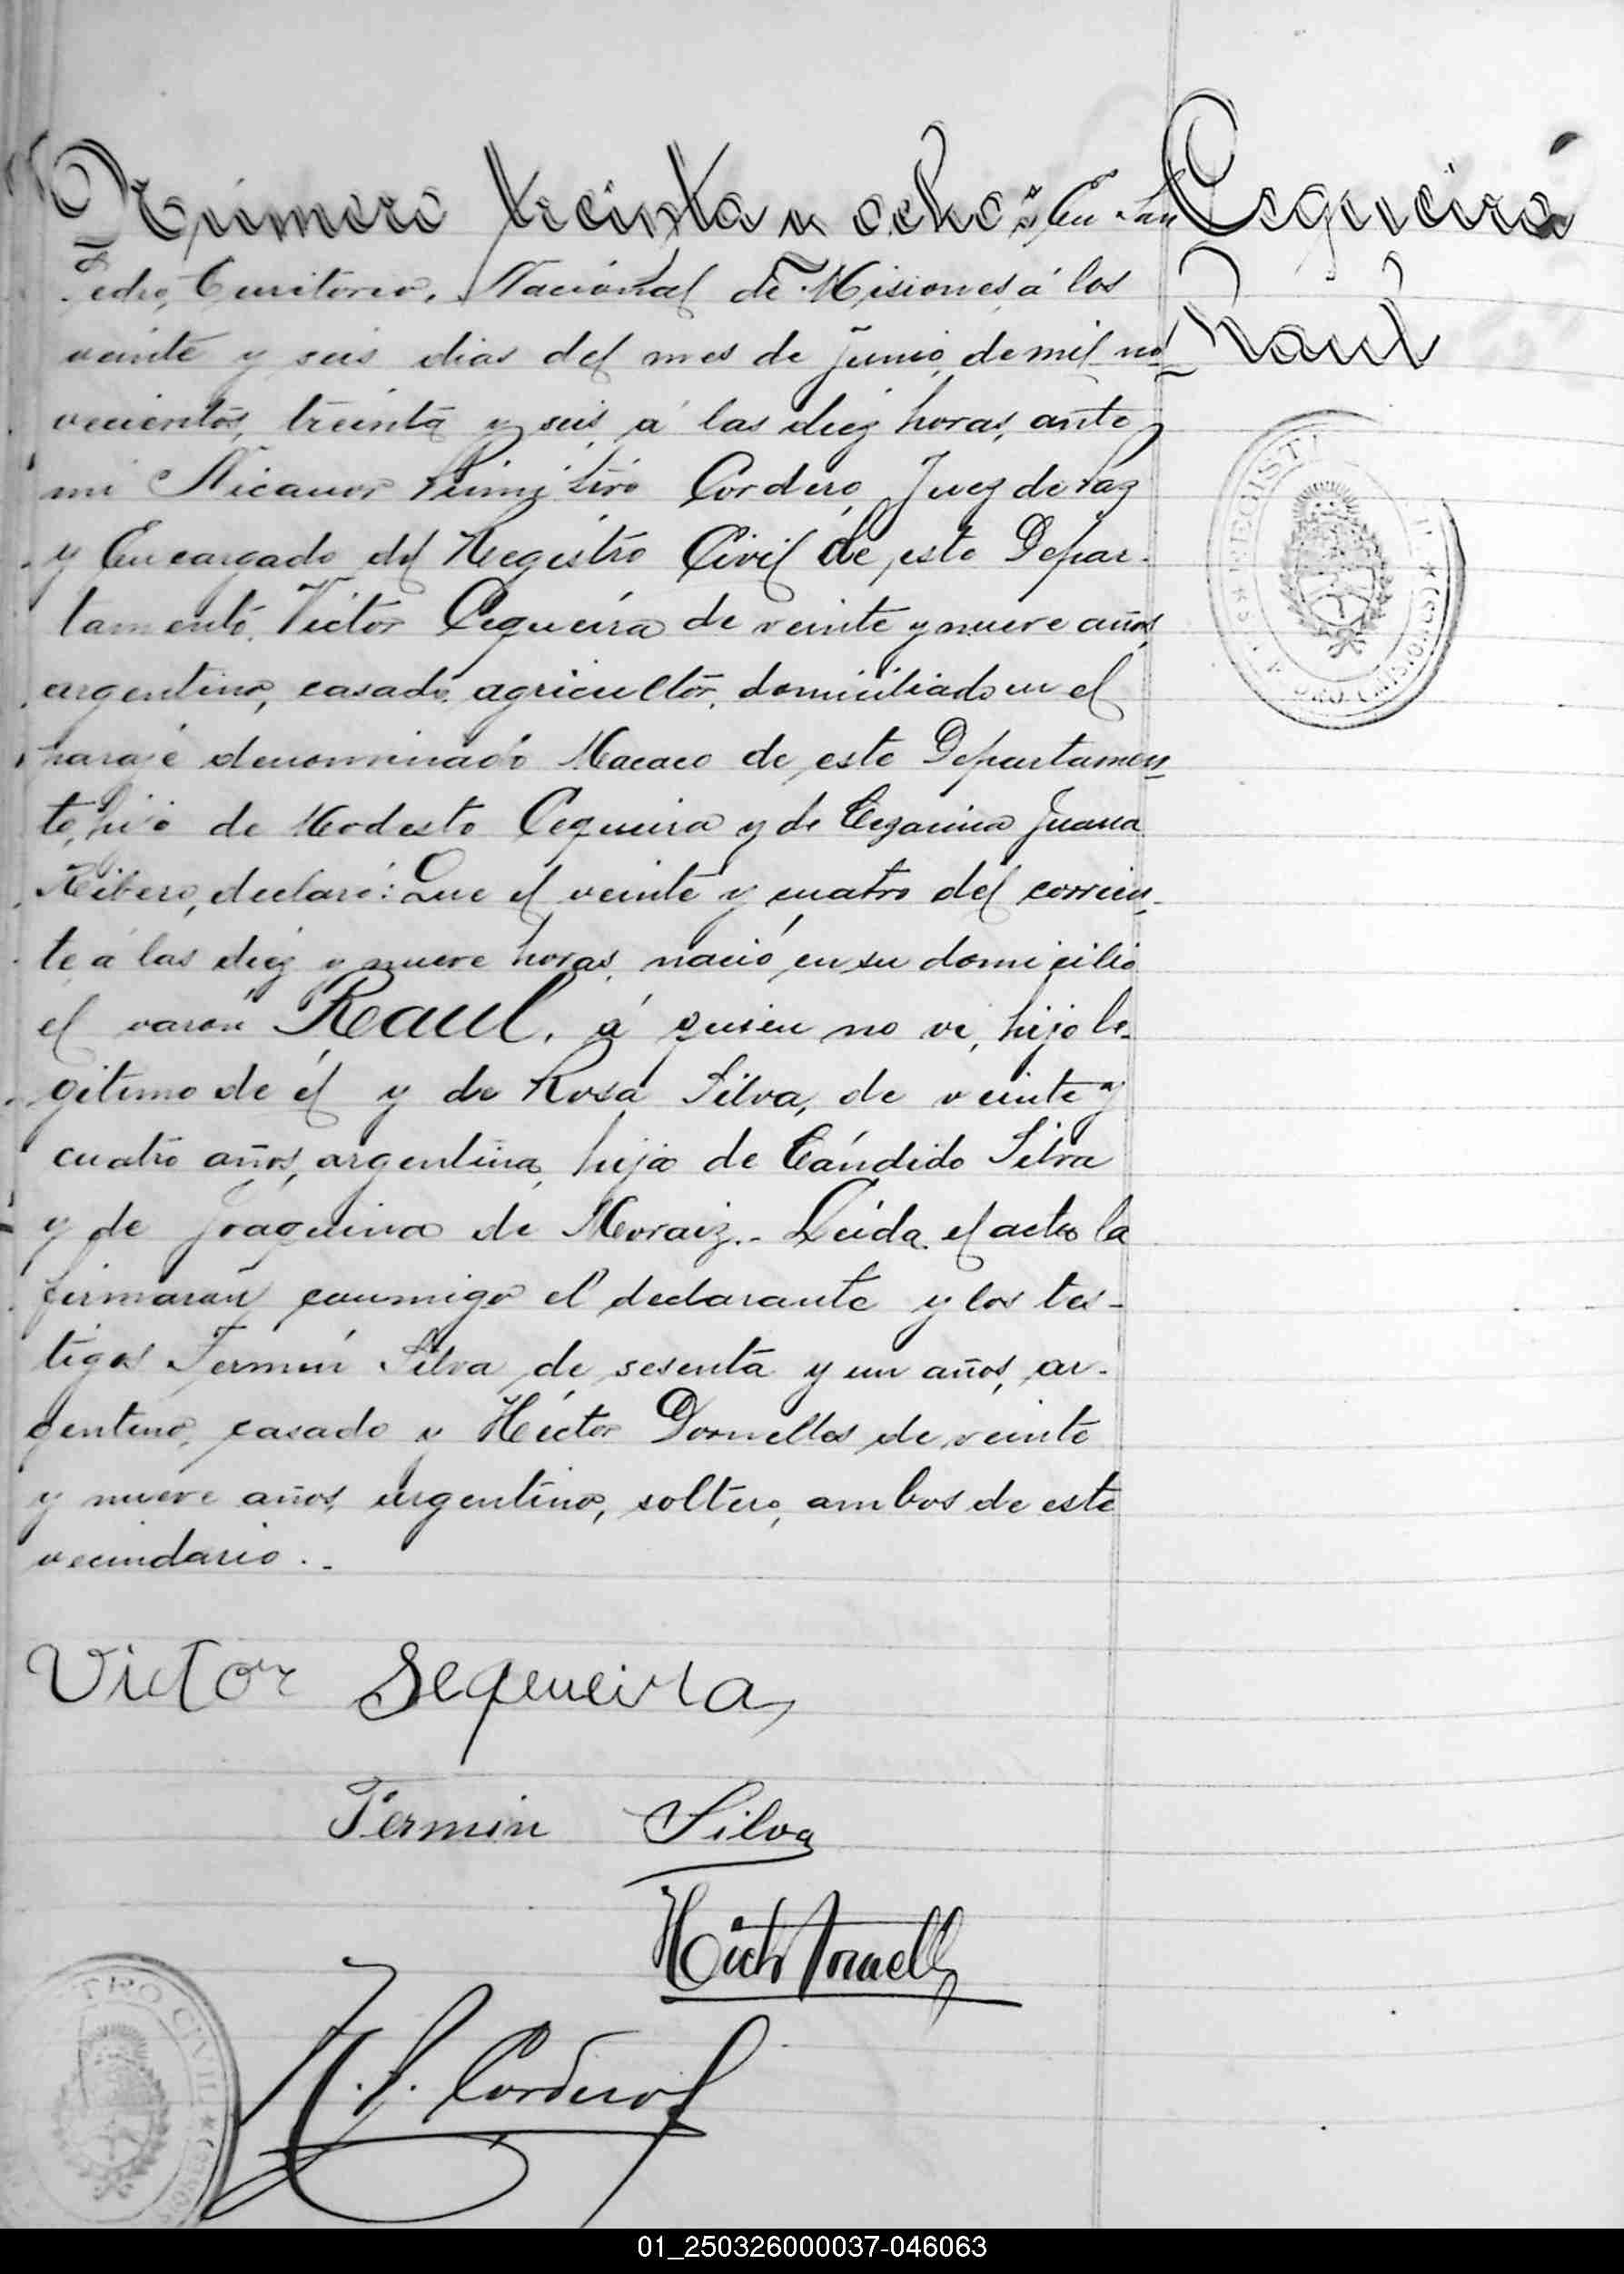 Número treinta y ocho: En San
Pedro, Territorio, Nacional de Misiones, á los
veinte y seis dias del mes de Junio, de mil no-
vecientos, treinta y seis, á las diez horas, ante
mi Nicanor Cordero, Juez de Paz
y Encargado del Registro Civil de este Depar-
tamento, Victor Cequeira de veinte y nueve años,
argentino, casado, agricultor, domiciliado en el
paraje denominado Macaco de este Departamen-
to, hijo de Modesto Cequeira y de Juana
Ribero, declaró: Que el veinte y cuatro del corrien-
te á las diez y nueve horas, nació en su domicilio
el varón Raul, á quien no vi, hijo le-
gitimo de él y de Rosa Silva, de veinte y
cuatro años, argentina, hija de Cándido Silva
y de Joaquina de Moraiz.- Leida el acta la
firmaran conmigo el declarante y los tes-
tigos Fermín Silva de sesenta y un años, ar-
gentino, casado y Héctor Dornelles de veinte
y nueve años, argentino, soltero, ambos de este
vecindario.-
Cequeira
Raul
REGISTR
Victor Sequeira
Fermin Silva
N. P. Cordero
CIVIL
01_250326000037-046063